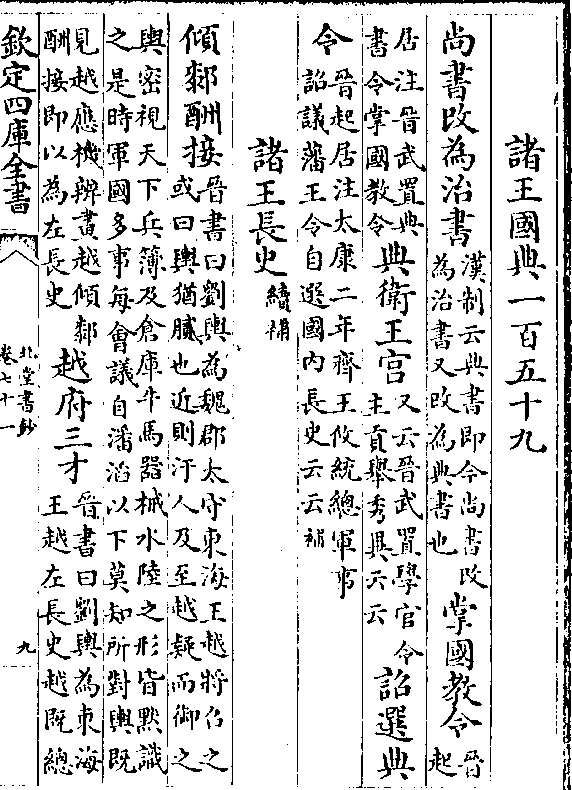 諸王國典一百五十九
尚書改為治書漢制云典書即今尚書改為治書又改為典書也掌國教令晉起
居注晉武置典書令掌國教令典衛王宮又云晉武置學官令主貢舉秀異云云詔選典
令晉起居注太康二年齊王攸統總軍事詔議藩王令自選國内長史云云補
諸王長史續補
傾鄰酬接晉書曰劉輿為魏郡太守東海王越將召之或曰輿猶膩也近則汙人及至越疑而御之
輿密視天下兵簿及倉庫牛馬器械水陸之形皆黙識之是時軍國多事每會議自潘滔以下莫知所對輿既
見越應機辨畫越傾鄰酬接即以為左長史越府三才晉書曰劉輿為東海王越左長史越既總
欽定四庫全書
北堂書鈔
卷七十一
九